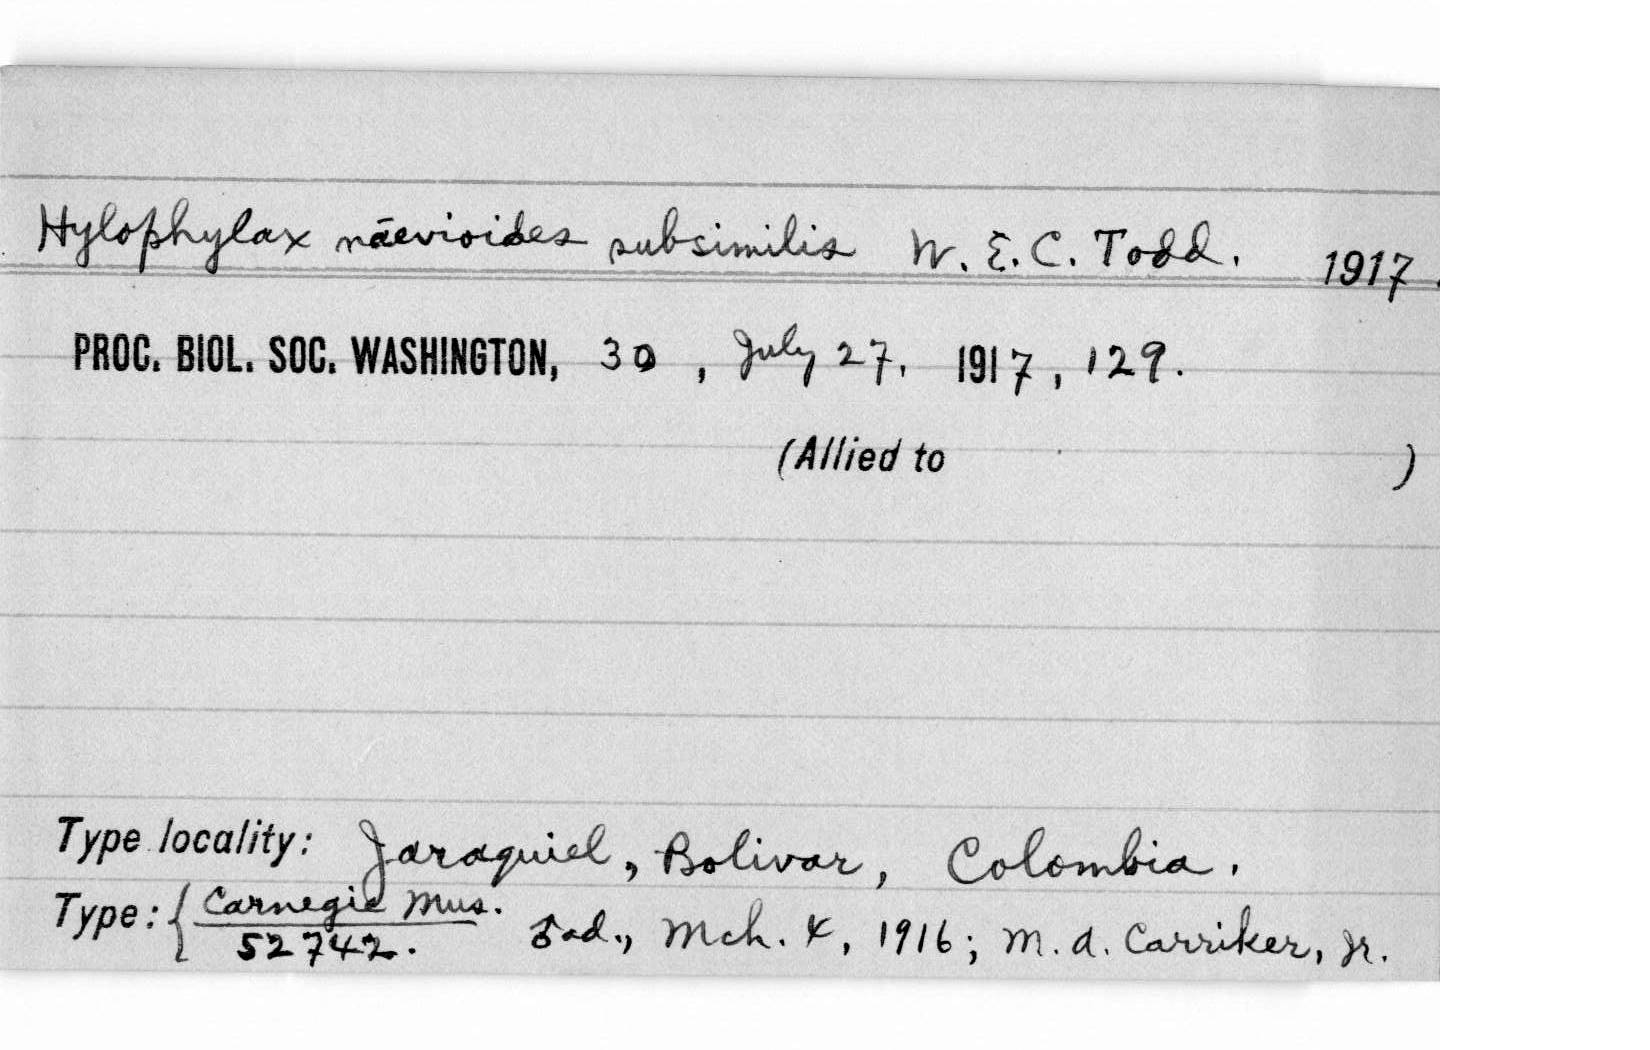 Hylophylax nāevioides subsimilis W. E. C. Todd. 1917.
PROC. BIOL. SOC. WASHINGTON, 30, July 27, 1917, 129.
(Allied to )
Type locality: Jaraquiel, Bolivar, Colombia.
Type: { Carnegie Mus.
52742. ♂ad., Mch. 4, 1916; M. A. Carriker, Jr.